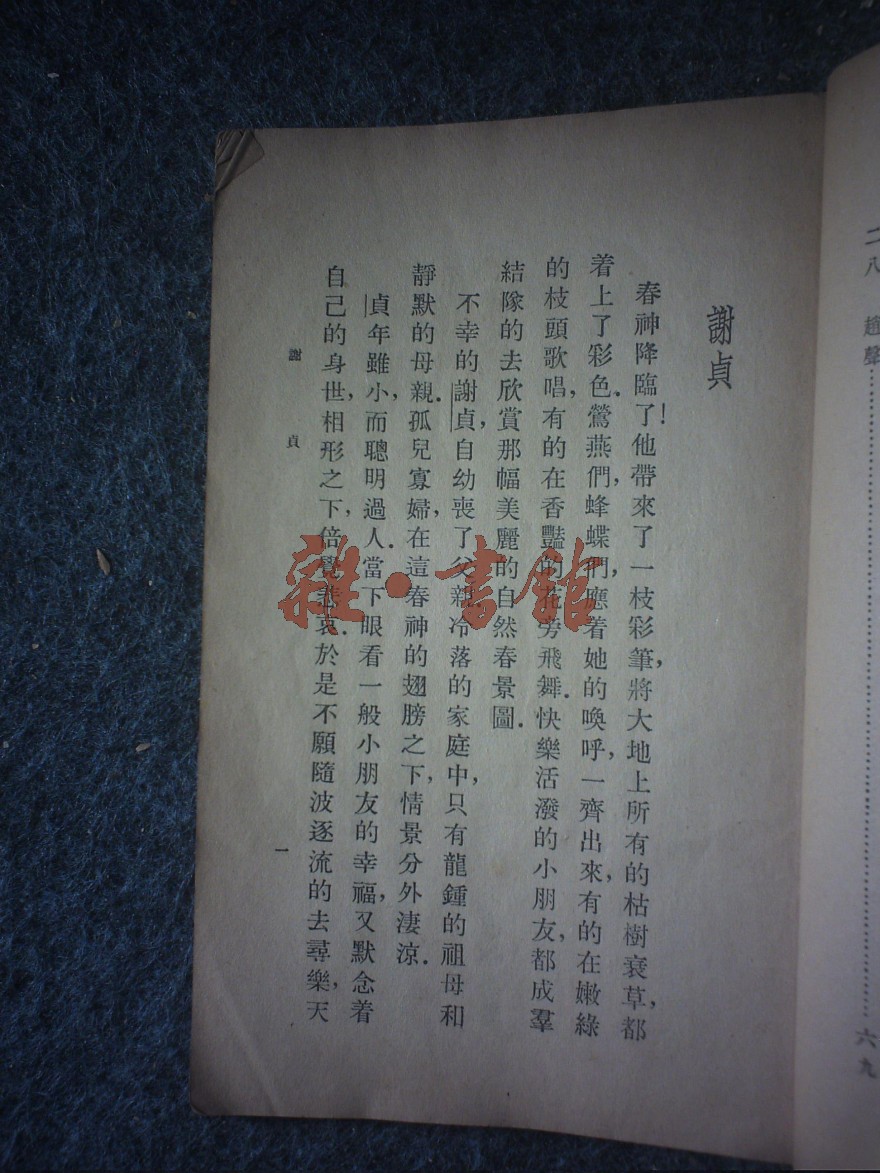 二八　趙聲……………六九
謝貞
春神降臨了！他帶來了一枝彩筆，將大地上所有的枯樹衰草，都
着上了彩色．鶯燕們，蜂蝶們，應着她的喚呼，一齊出來，有的在嫩綠
的枝頭歌唱，有的在香豔的花旁飛舞．快樂活潑的小朋友，都成羣
結隊的去欣賞那幅美麗的自然春景圖．
不幸的謝貞，自幼喪了父親，冷落的家庭中，只有龍鍾的祖母和
靜默的母親．孤兒寡婦，在這春神的翅膀之下，情景分外淒涼．
貞年雖小，而聰明過人．當下眼看一般小朋友的幸福，又默念着
自己的身世，相形之下，倍覺悲哀．於是不願隨波逐流的去尋樂，天
謝　貞
一
雜·書館